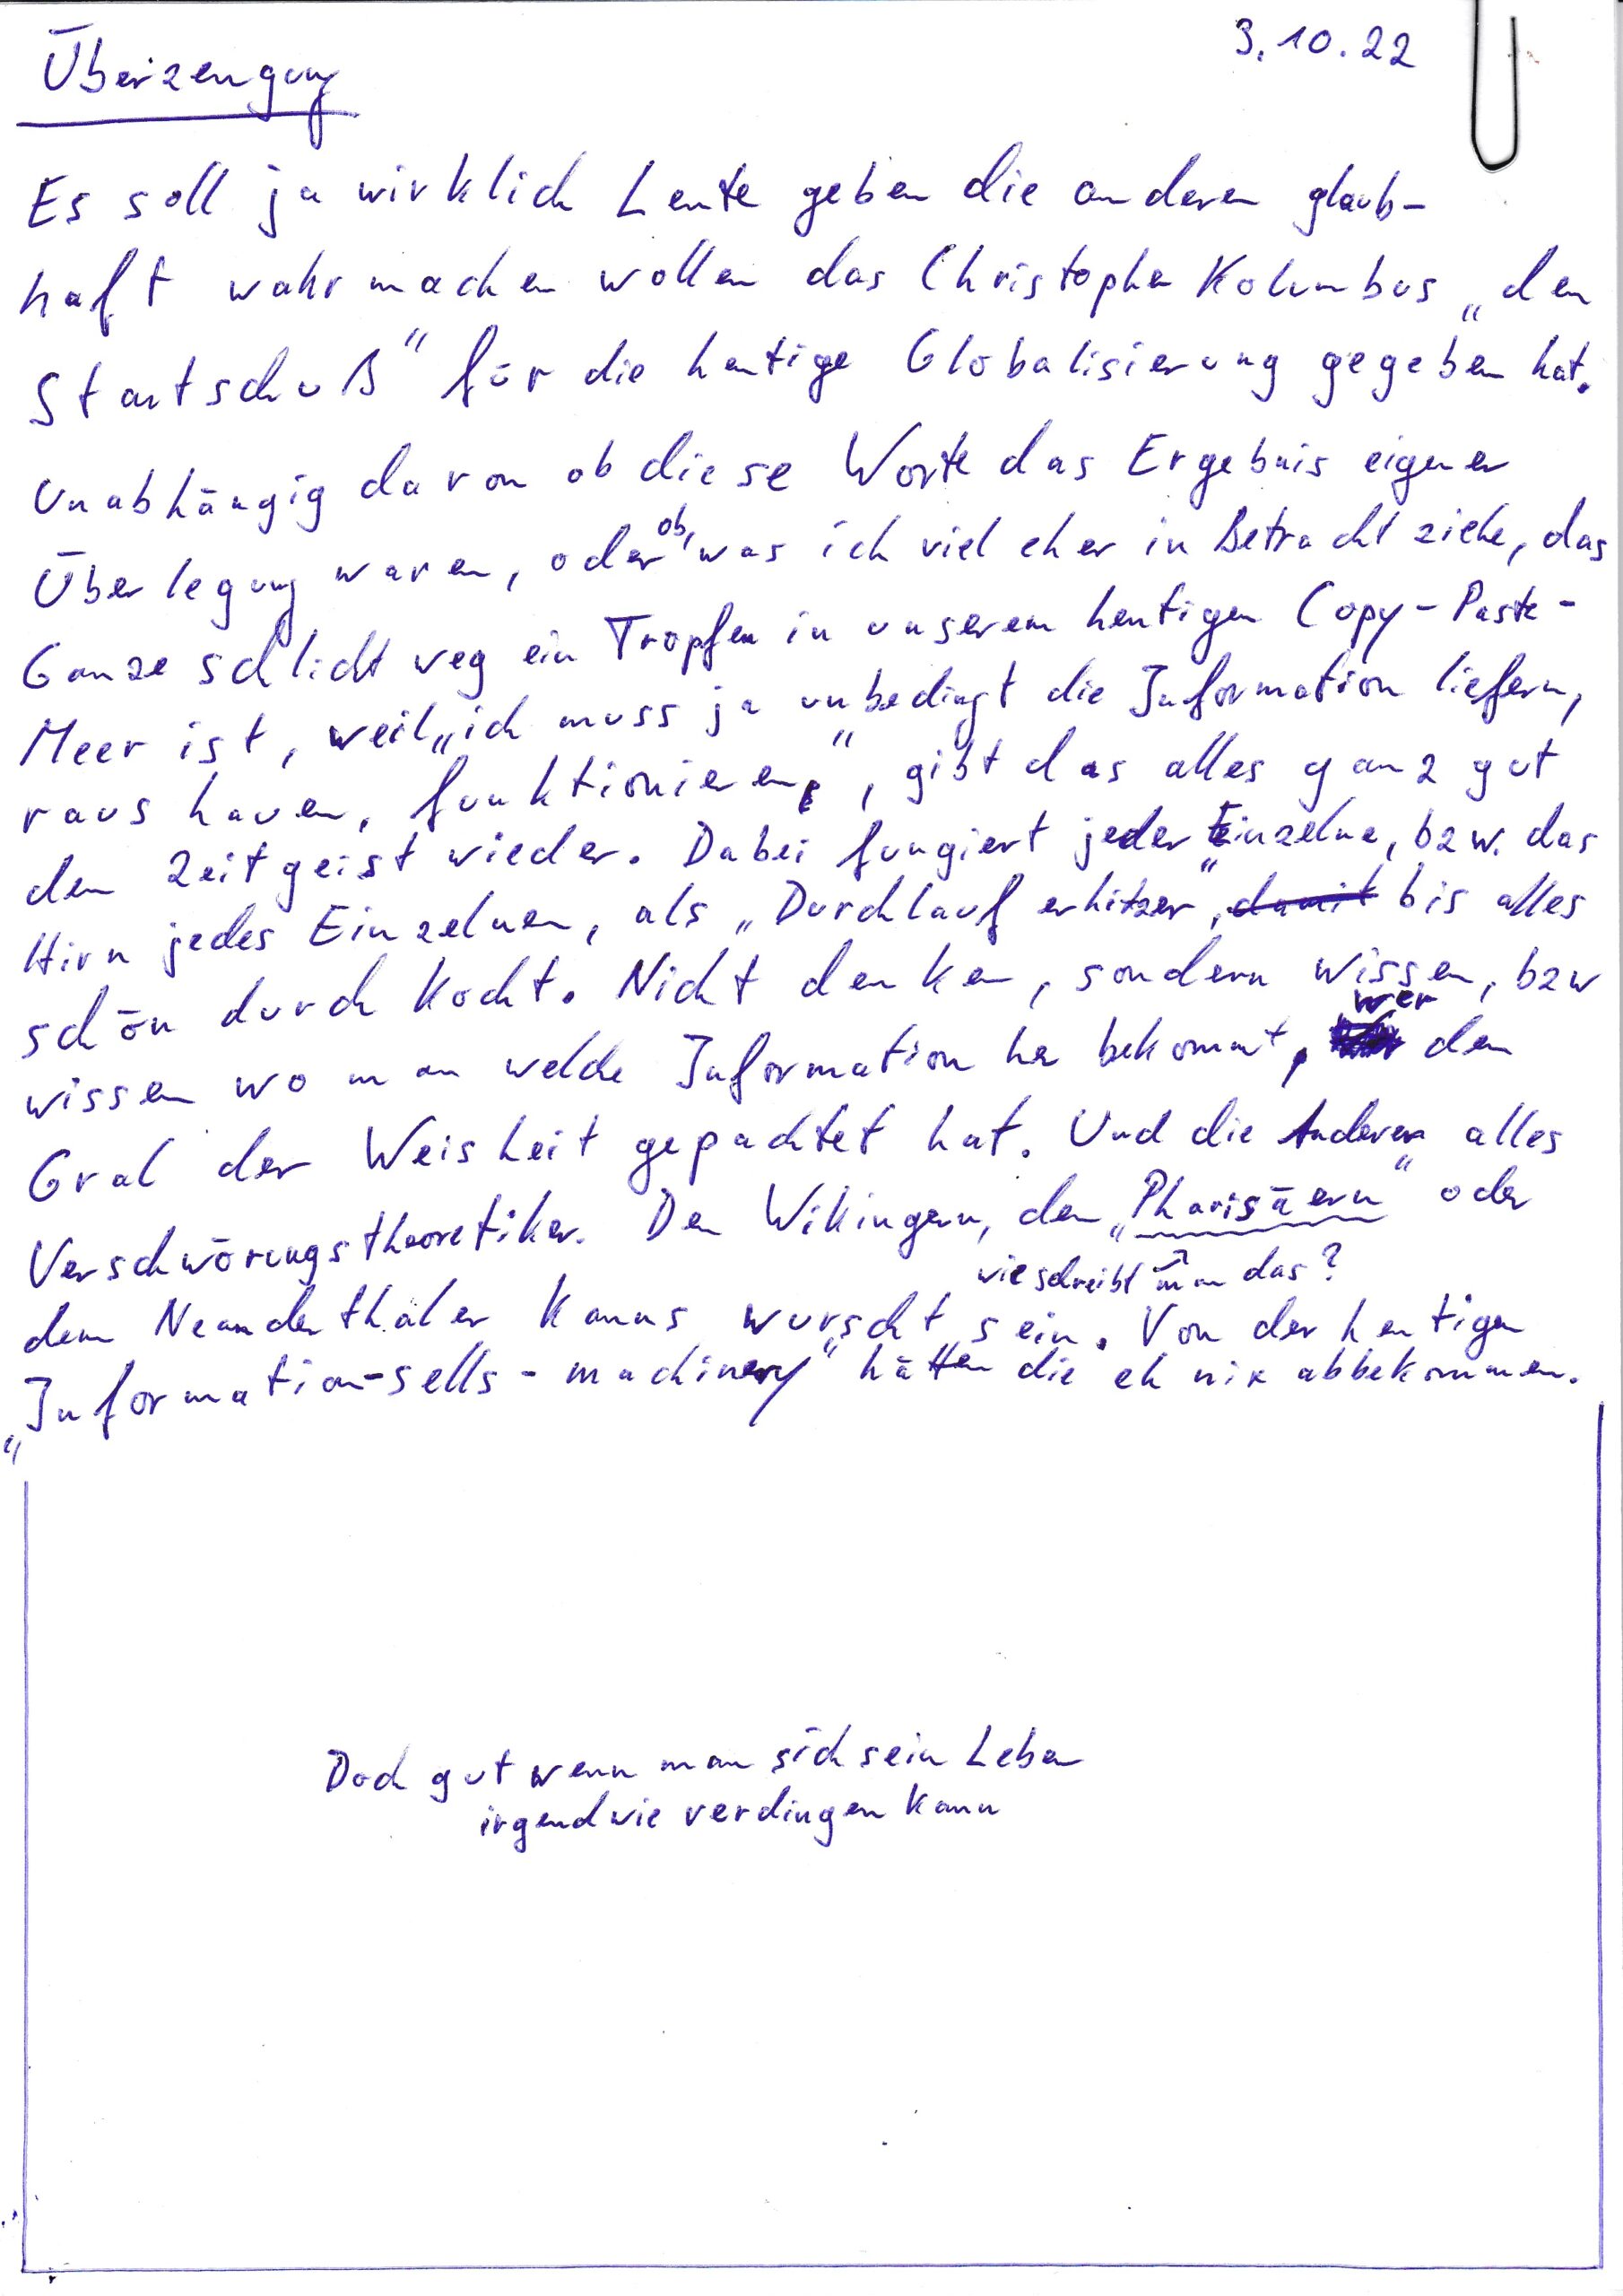 3.10.22
Überzeugung
Es soll ja wirklich Leute geben die anderen glaub-
haft wahr machen wollen das Christopher Kolumbus „den
Startschuß" für die heutige Globalisierung gegeben hat.
Unabhängig davon ob diese Worte das Ergebnis eigener
Überlegung waren, oder ob, was ich viel eher in Betracht ziehe, das
Ganze schlicht weg ein Tropfen in unserem heutigen Copy-Paste-
Meer ist, weil „ich muss ja unbedingt die Information liefern,
raus hauen, funktionieren", gibt das alles ganz gut
den Zeitgeist wieder. Dabei fungiert jeder Einzelne, bzw. das
Hirn jedes Einzelnen, als „Durchlauferhitzer", damit bis alles
schön durch kocht. Nicht denken, sondern wissen, bzw
wissen wo man welche Information her bekommt, wer den
Gral der Weisheit gepachtet hat. Und die Anderen alles
Verschwörungstheoretiker. Den Wikingern, den „Pharisäern" oder
wie schreibt man das?
dem Neanderthaler kanns wurscht sein. Von der heutigen
„Information-sells-machinery" hätten die eh nix abbekommen.
Doch gut wenn man sich sein Leben
irgendwie verdingen kann